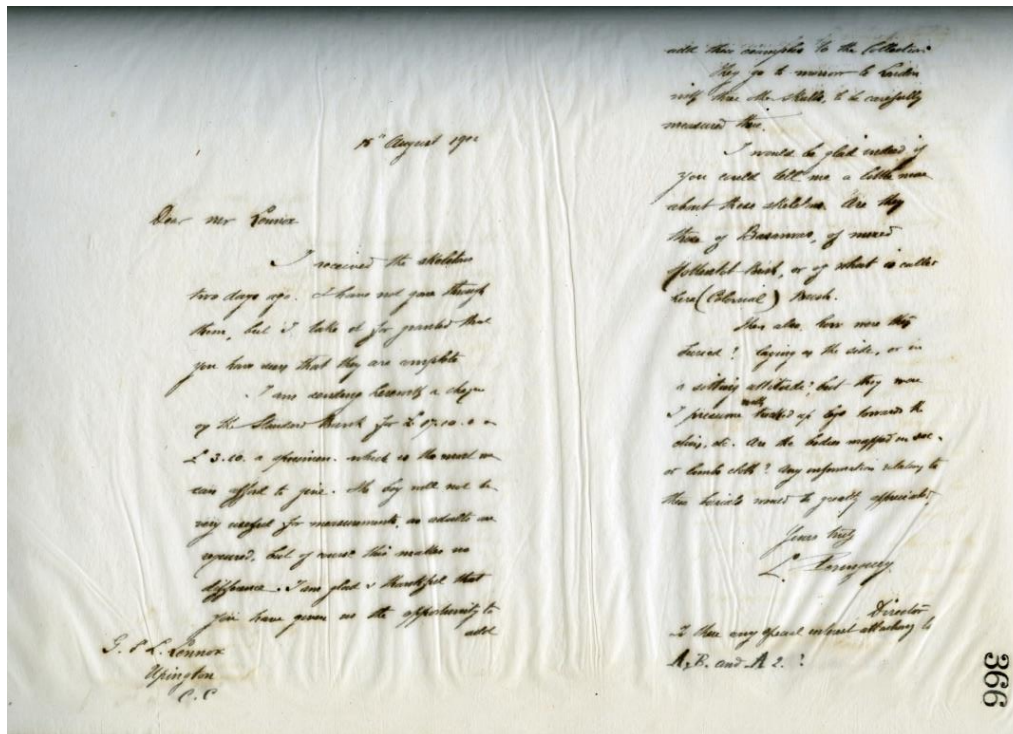 15th August 1902
Dear Mr Lennox
I received the skeletons
two days ago. I have not gone through
them, but I take it for granted that
you have seen that they are complete
I am sending herewith a cheque
of the Standard Bank for £ 17.10.0 or
£ 3.10. a specimen. which is the most we
can afford to give. The boy will not be
very useful for measurements, as adults are
required, but of course this makes no
difference. I am glad & thankful that
you have given us the opportunity to
add
G. S. L. Lennox
Upington
C.C
add these examples to the Collection
They go to morrow to London
with three other skulls, to be carefully
measured there.
I would be glad indeed if
you could tell me a little more
about these skeletons. Are they
those of of mixed
Bush, or of what is called
here (Colonial) Bush.
Then also, how were they
buried? laying on the side, or in
a sitting attitude? but they were
I presume with tucked up legs towards the
chin, etc. Are the bodies wrapped in
or cloth? Any information relating to
these burials would be greatly appreciated
Yours truly
L. Peringuey
Director
Is there any special interest attaching to
A, B. and A 2. ?
366